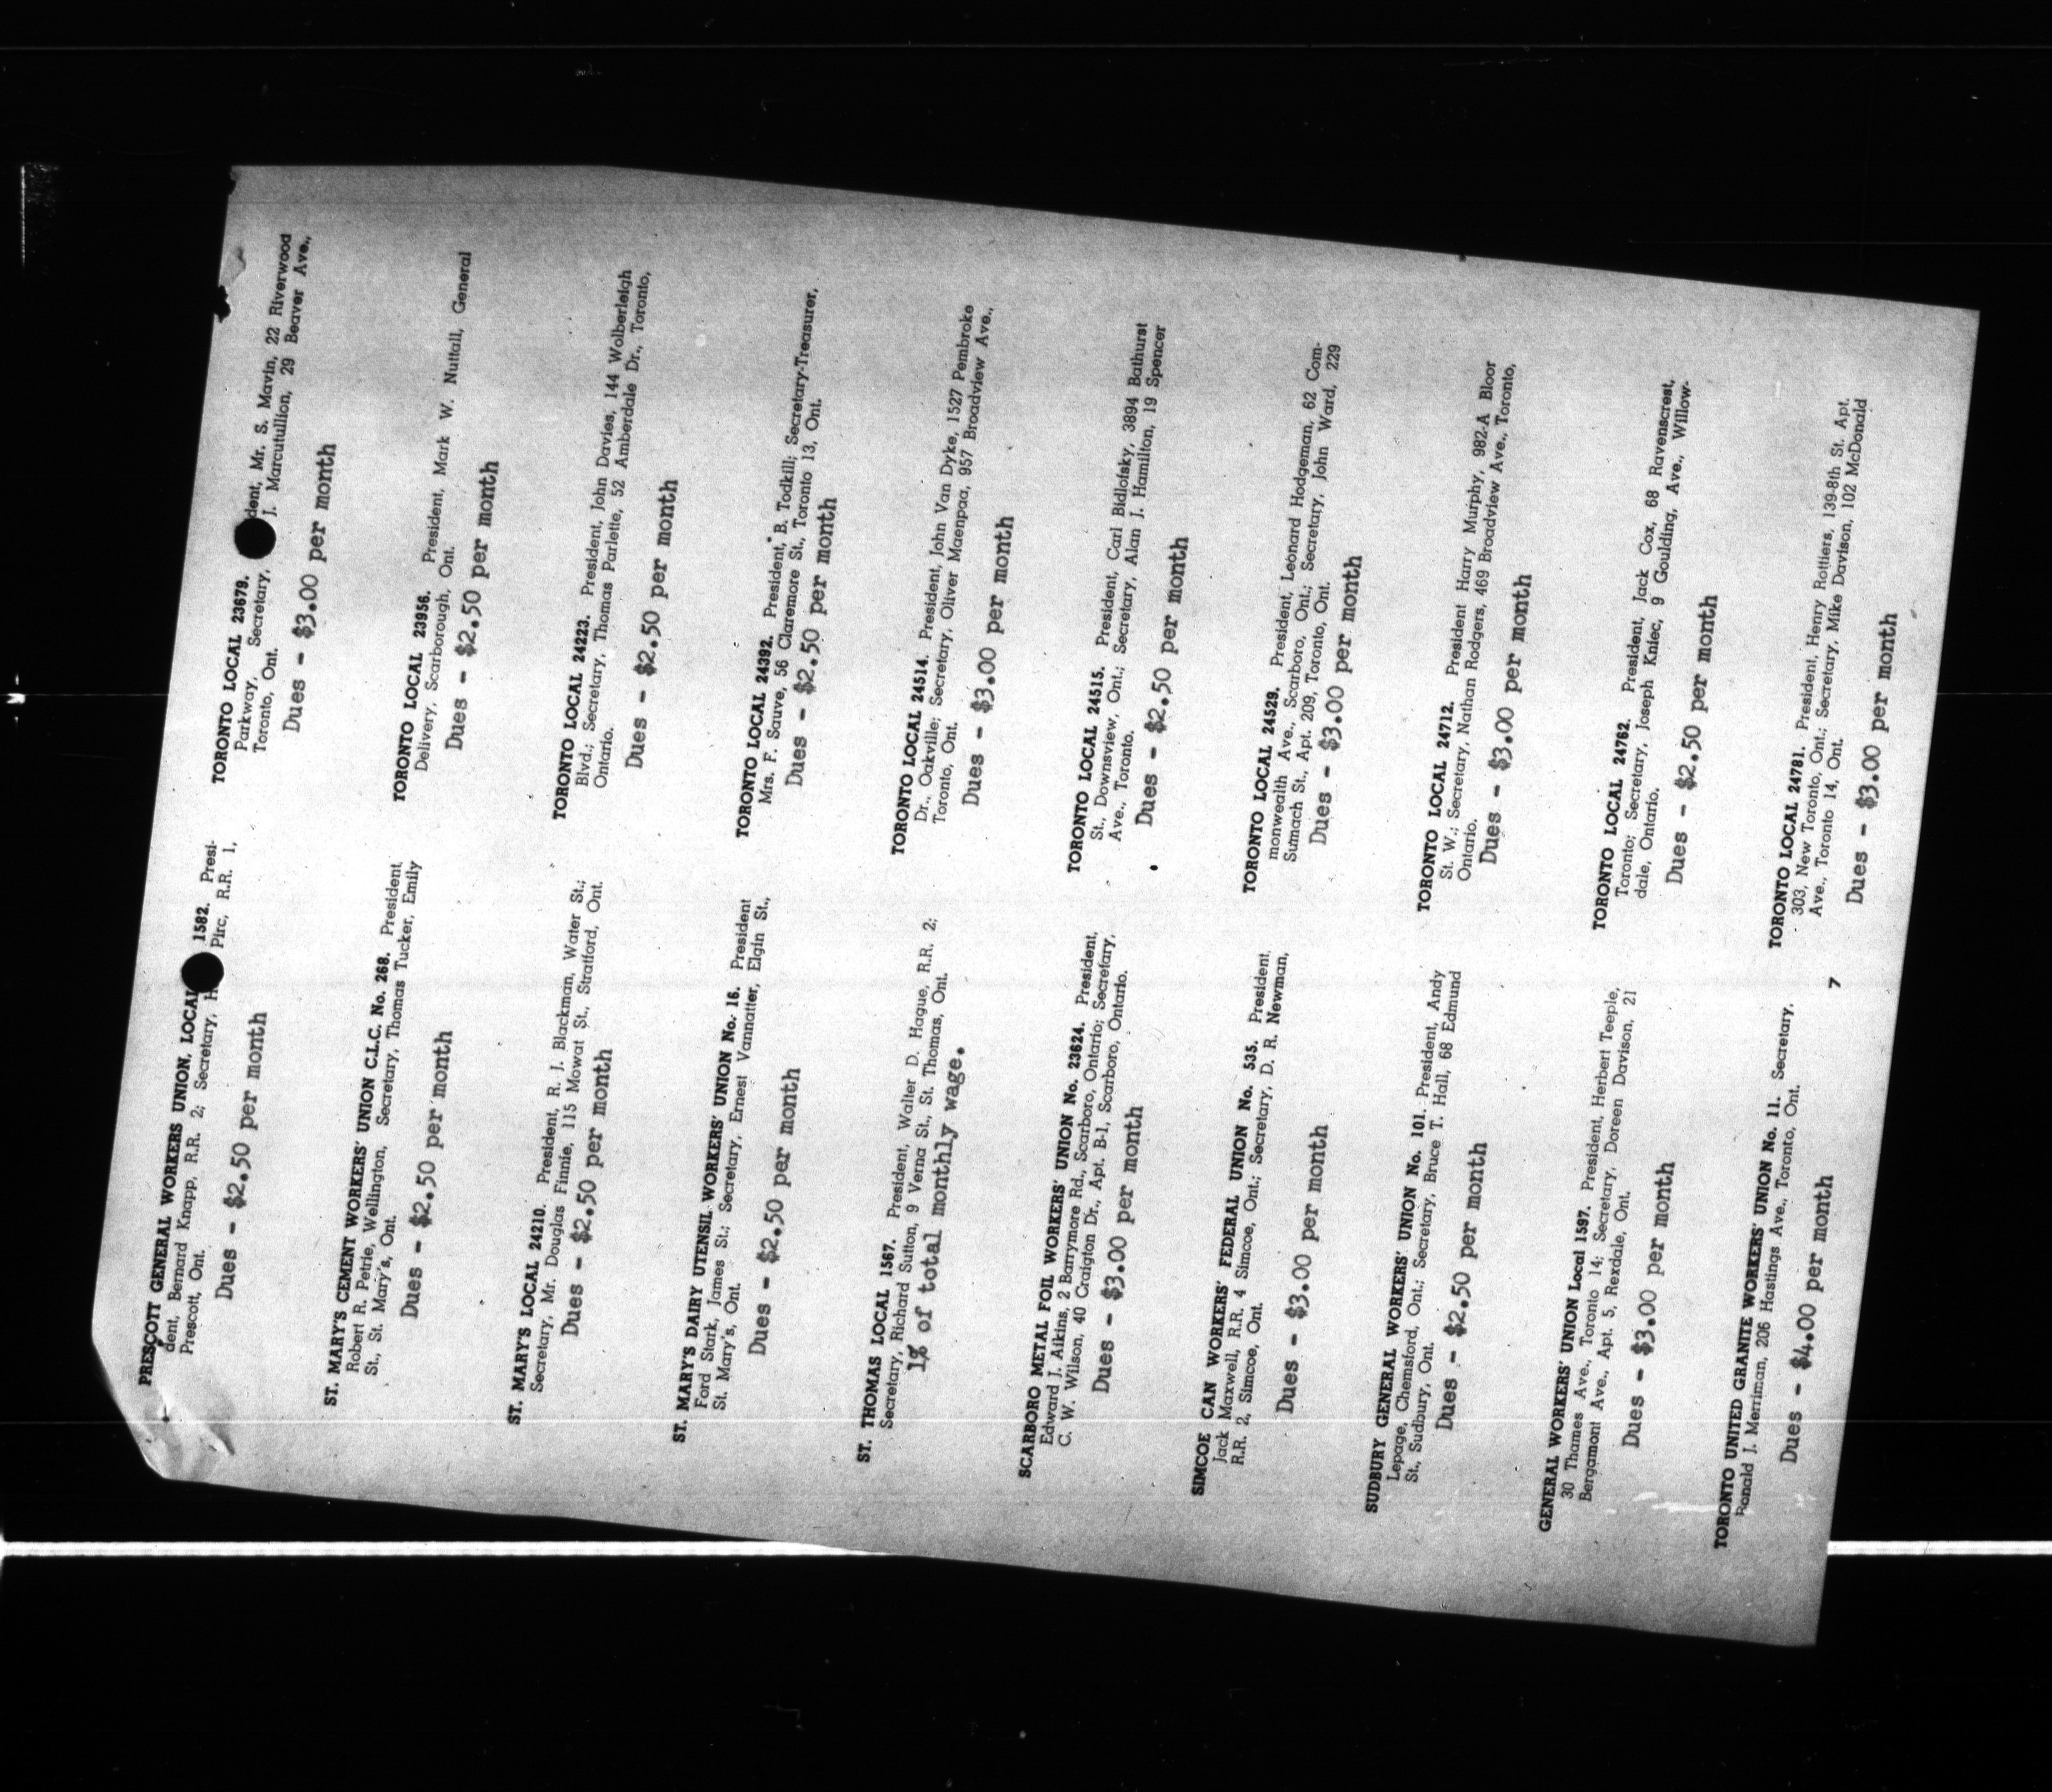 PRESCOTT GENERAL WORKERS UNION, LOCAL 1582. Presi-
dent, Bernard Knapp, R.R. 2; Secretary, Pirc, R.R. 1,
Prescott, Ont.
Dues - $2.50 per month
ST. MARY'S CEMENT WORKERS' UNION C.L.C. No. 268. President
Robert R. Petrie, Wellington, Secretary, Thomas Tucker, Emily
St., St. Mary's, Ont.
Dues - $2.50 per month
ST. MARY'S LOCAL 24210. President, R. J. Blackman, Water St.;
Secretary, Mr. Douglas Finnie, 115 Mowat St., Stratford, Ont.
Dues - $2.50 per month
ST. MARY'S DAIRY UTENSIL WORKERS' UNION No. 16. President
Ford Stark, James St.; Secretary, Ernest Vannatter, Elgin St.,
St. Mary's, Ont.
Dues - $2.50 per month
ST. THOMAS LOCAL 1567. President, Walter D. Hague, R.R. 2;
Secretary, Richard Sutton, 9 Verna St., St. Thomas, Ont.
1% of total monthly wage.
SCARBORO METAL FOIL WORKERS' UNION No. 23624. President,
Edward J. Aikins, 2 Barrymore Rd., Scarboro, Ontario; Secretary,
C. W. Wilson, 40 Craigton Dr., Apt. B-1, Scarboro, Ontario.
Dues - $3.00 per month
SIMCOE CAN WORKERS' FEDERAL UNION No. 535. President,
Jack Maxwell, R.R. 4 Simcoe, Ont.; Secretary, D. R. Newman,
R.R. 2, Simcoe, Ont.
Dues - $3.00 per month
SUDBURY GENERAL WORKERS' UNION No. 101. President, Andy
Lepage, Chemsford, Ont.; Secretary, Bruce T. Hall, 68 Edmund
St., Sudbury, Ont.
Dues - $2.50 per month
GENERAL WORKERS' UNION Local 1597. President, Herbert Teeple,
30 Thames Ave., Toronto 14; Secretary, Doreen Davison, 21
Bergamont Ave., Apt. 5, Rexdale, Ont.
Dues - $3.00 per month
TORONTO UNITED GRANITE WORKERS' UNION No. 11. Secretary,
Ronald J. Merriman, 206 Hastings Ave., Toronto, Ont.
Dues - $4.00 per month
TORONTO LOCAL 23679. dent, Mr. S. Mavin, 22 Riverwood
Parkway, Secretary, J. Marcutullion, 29 Beaver Ave.,
Toronto, Ont.
Dues - $3.00 per month
TORONTO LOCAL 23956. President, Mark W. Nuttall, General
Delivery, Scarborough, Ont.
Dues - $2.50 per month
TORONTO LOCAL 24223. President, John Davies, 144 Wolberleigh
Blvd.; Secretary, Thomas Parlette, 52 Amberdale Dr., Toronto,
Ontario.
Dues - $2.50 per month
TORONTO LOCAL 24392. President, B. Todkill; Secretary-Treasurer,
Mrs. F. Sauve, 56 Claremore St., Toronto 13, Ont.
Dues - $2.50 per month
TORONTO LOCAL 24514. President, John Van Dyke, 1527 Pembroke
Dr., Oakville; Secretary, Oliver Maenpaa, 957 Broadview Ave.,
Toronto, Ont.
Dues - $3.00 per month
TORONTO LOCAL 24515. President, Carl Bidlofsky, 3894 Bathurst
St., Downsview, Ont.; Secretary, Alan J. Hamilton, 19 Spencer
Ave., Toronto.
Dues - $2.50 per month
TORONTO LOCAL 24529. President, Leonard Hodgeman, 62 Com-
monwealth Ave., Scarboro, Ont.; Secretary, John Ward, 229
Sumach St., Apt. 209, Toronto, Ont.
Dues - $3.00 per month
TORONTO LOCAL 24712. President Harry Murphy, 982-A Bloor
St. W.; Secretary, Nathan Rodgers, 469 Broadview Ave., Toronto,
Ontario.
Dues - $3.00 per month
TORONTO LOCAL 24762. President, Jack Cox, 68 Ravenscrest,
Toronto; Secretary, Joseph Kniec, 9 Goulding, Ave., Willow-
dale, Ontario.
Dues - $2.50 per month
TORONTO LOCAL 24781. President, Henry Rottiers, 139-8th St. Apt.
303, New Toronto, Ont.; Secretary, Mike Davison, 102 McDonald
Ave., Toronto 14, Ont.
Dues - $3.00 per month
7